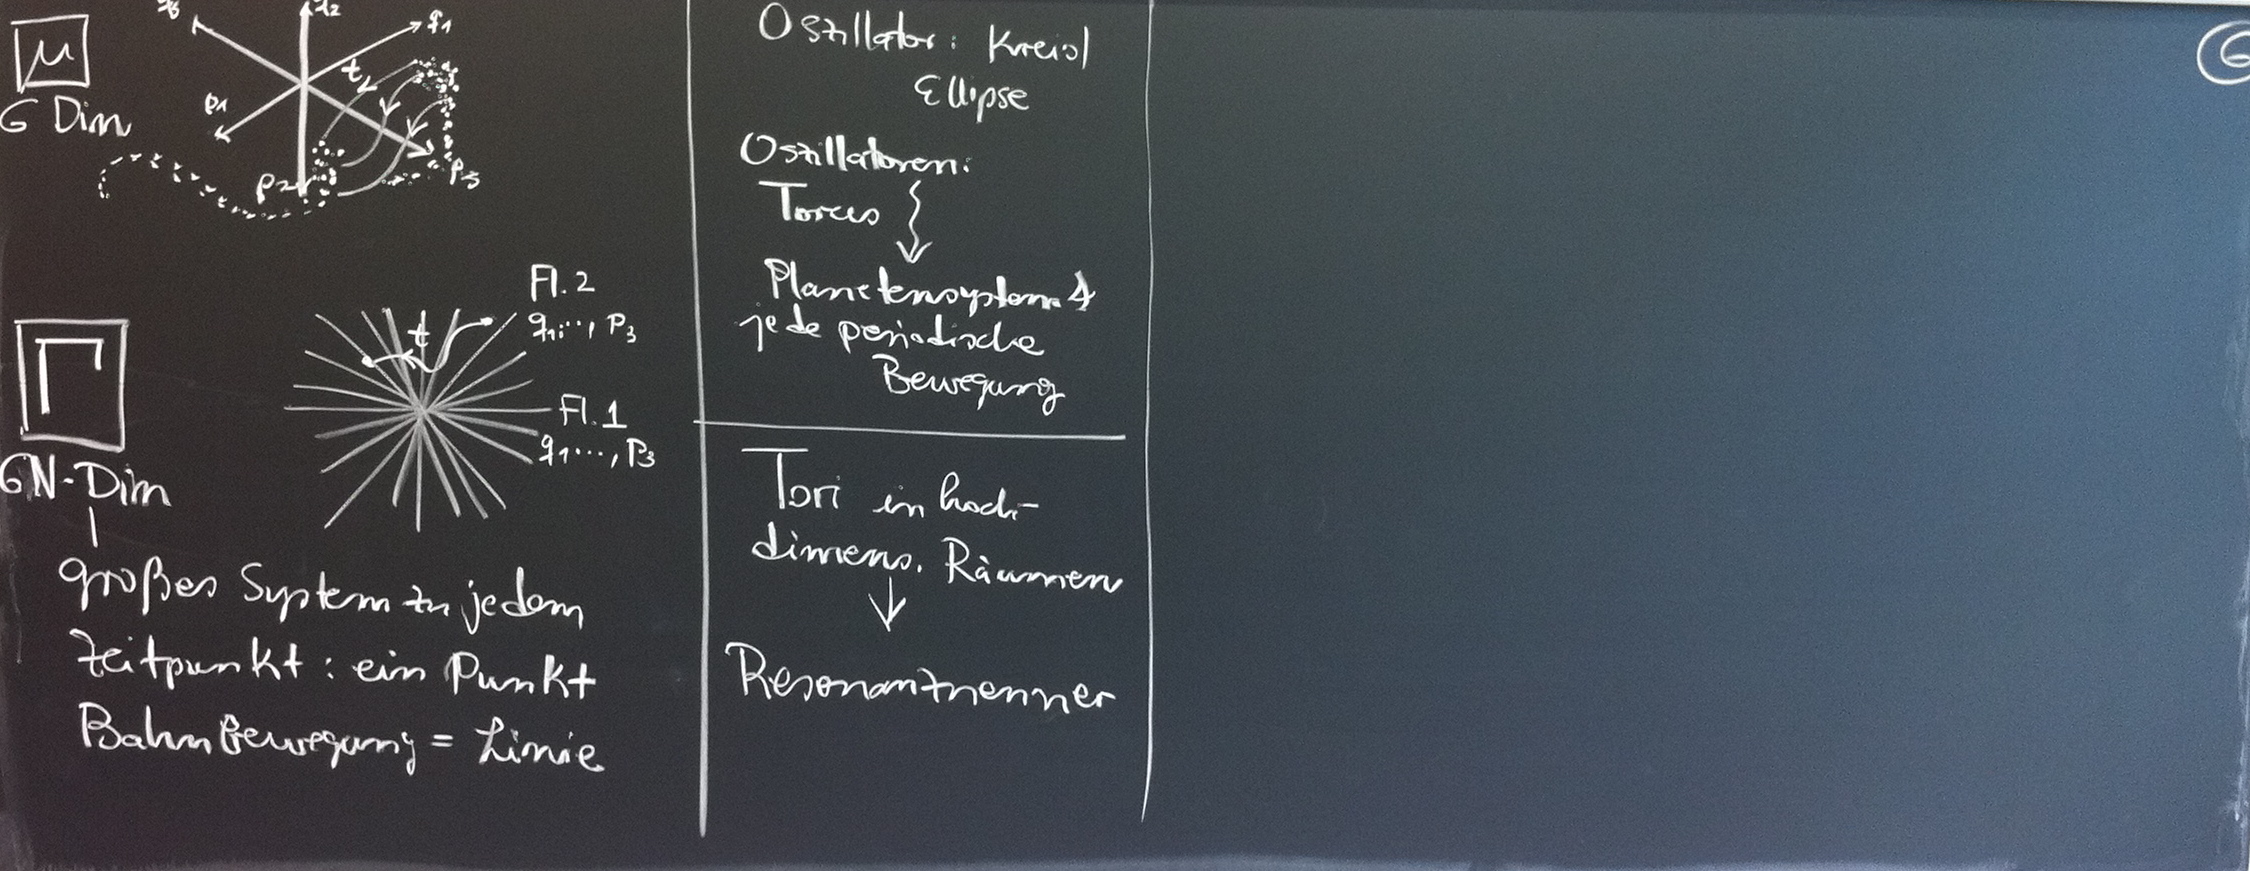 μ
6 Dim
q₁
t
p₁
p₂
p₃
Γ
6N-Dim
t
Fl. 2
q₁, ..., p₃
Fl. 1
q₁ ..., p₃
großes System zu jedem
Zeitpunkt : ein Punkt
Bahnbewegung = Linie
Oszillator : Kreis/
Ellipse
Oszillatoren:
Torus
Planetensystem &
jede periodische
Bewegung
Tori in hoch-
dimens. Räumen
Resonanznenner
6